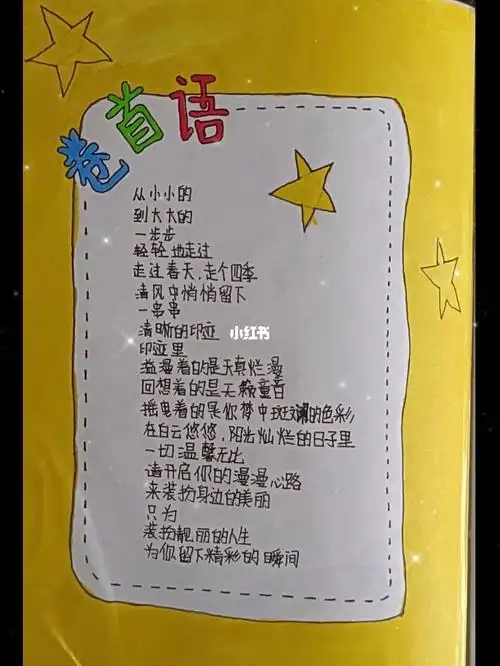 卷首语
从小小的
到大大的
一步步
轻轻地走过
走过春天,走个四季
清风中悄悄留下
一串串
清晰的印迹
小红书
印迹里
溢漫着的是天真烂漫
回想着的是无瑕童音
摇曳着的是你梦中斑斓的色彩
在白云悠悠,阳光灿烂的日子里
一切温馨无比
请开启你的漫漫心路
来装扮身边的美丽
只为
装扮靓丽的人生
为你留下精彩的瞬间